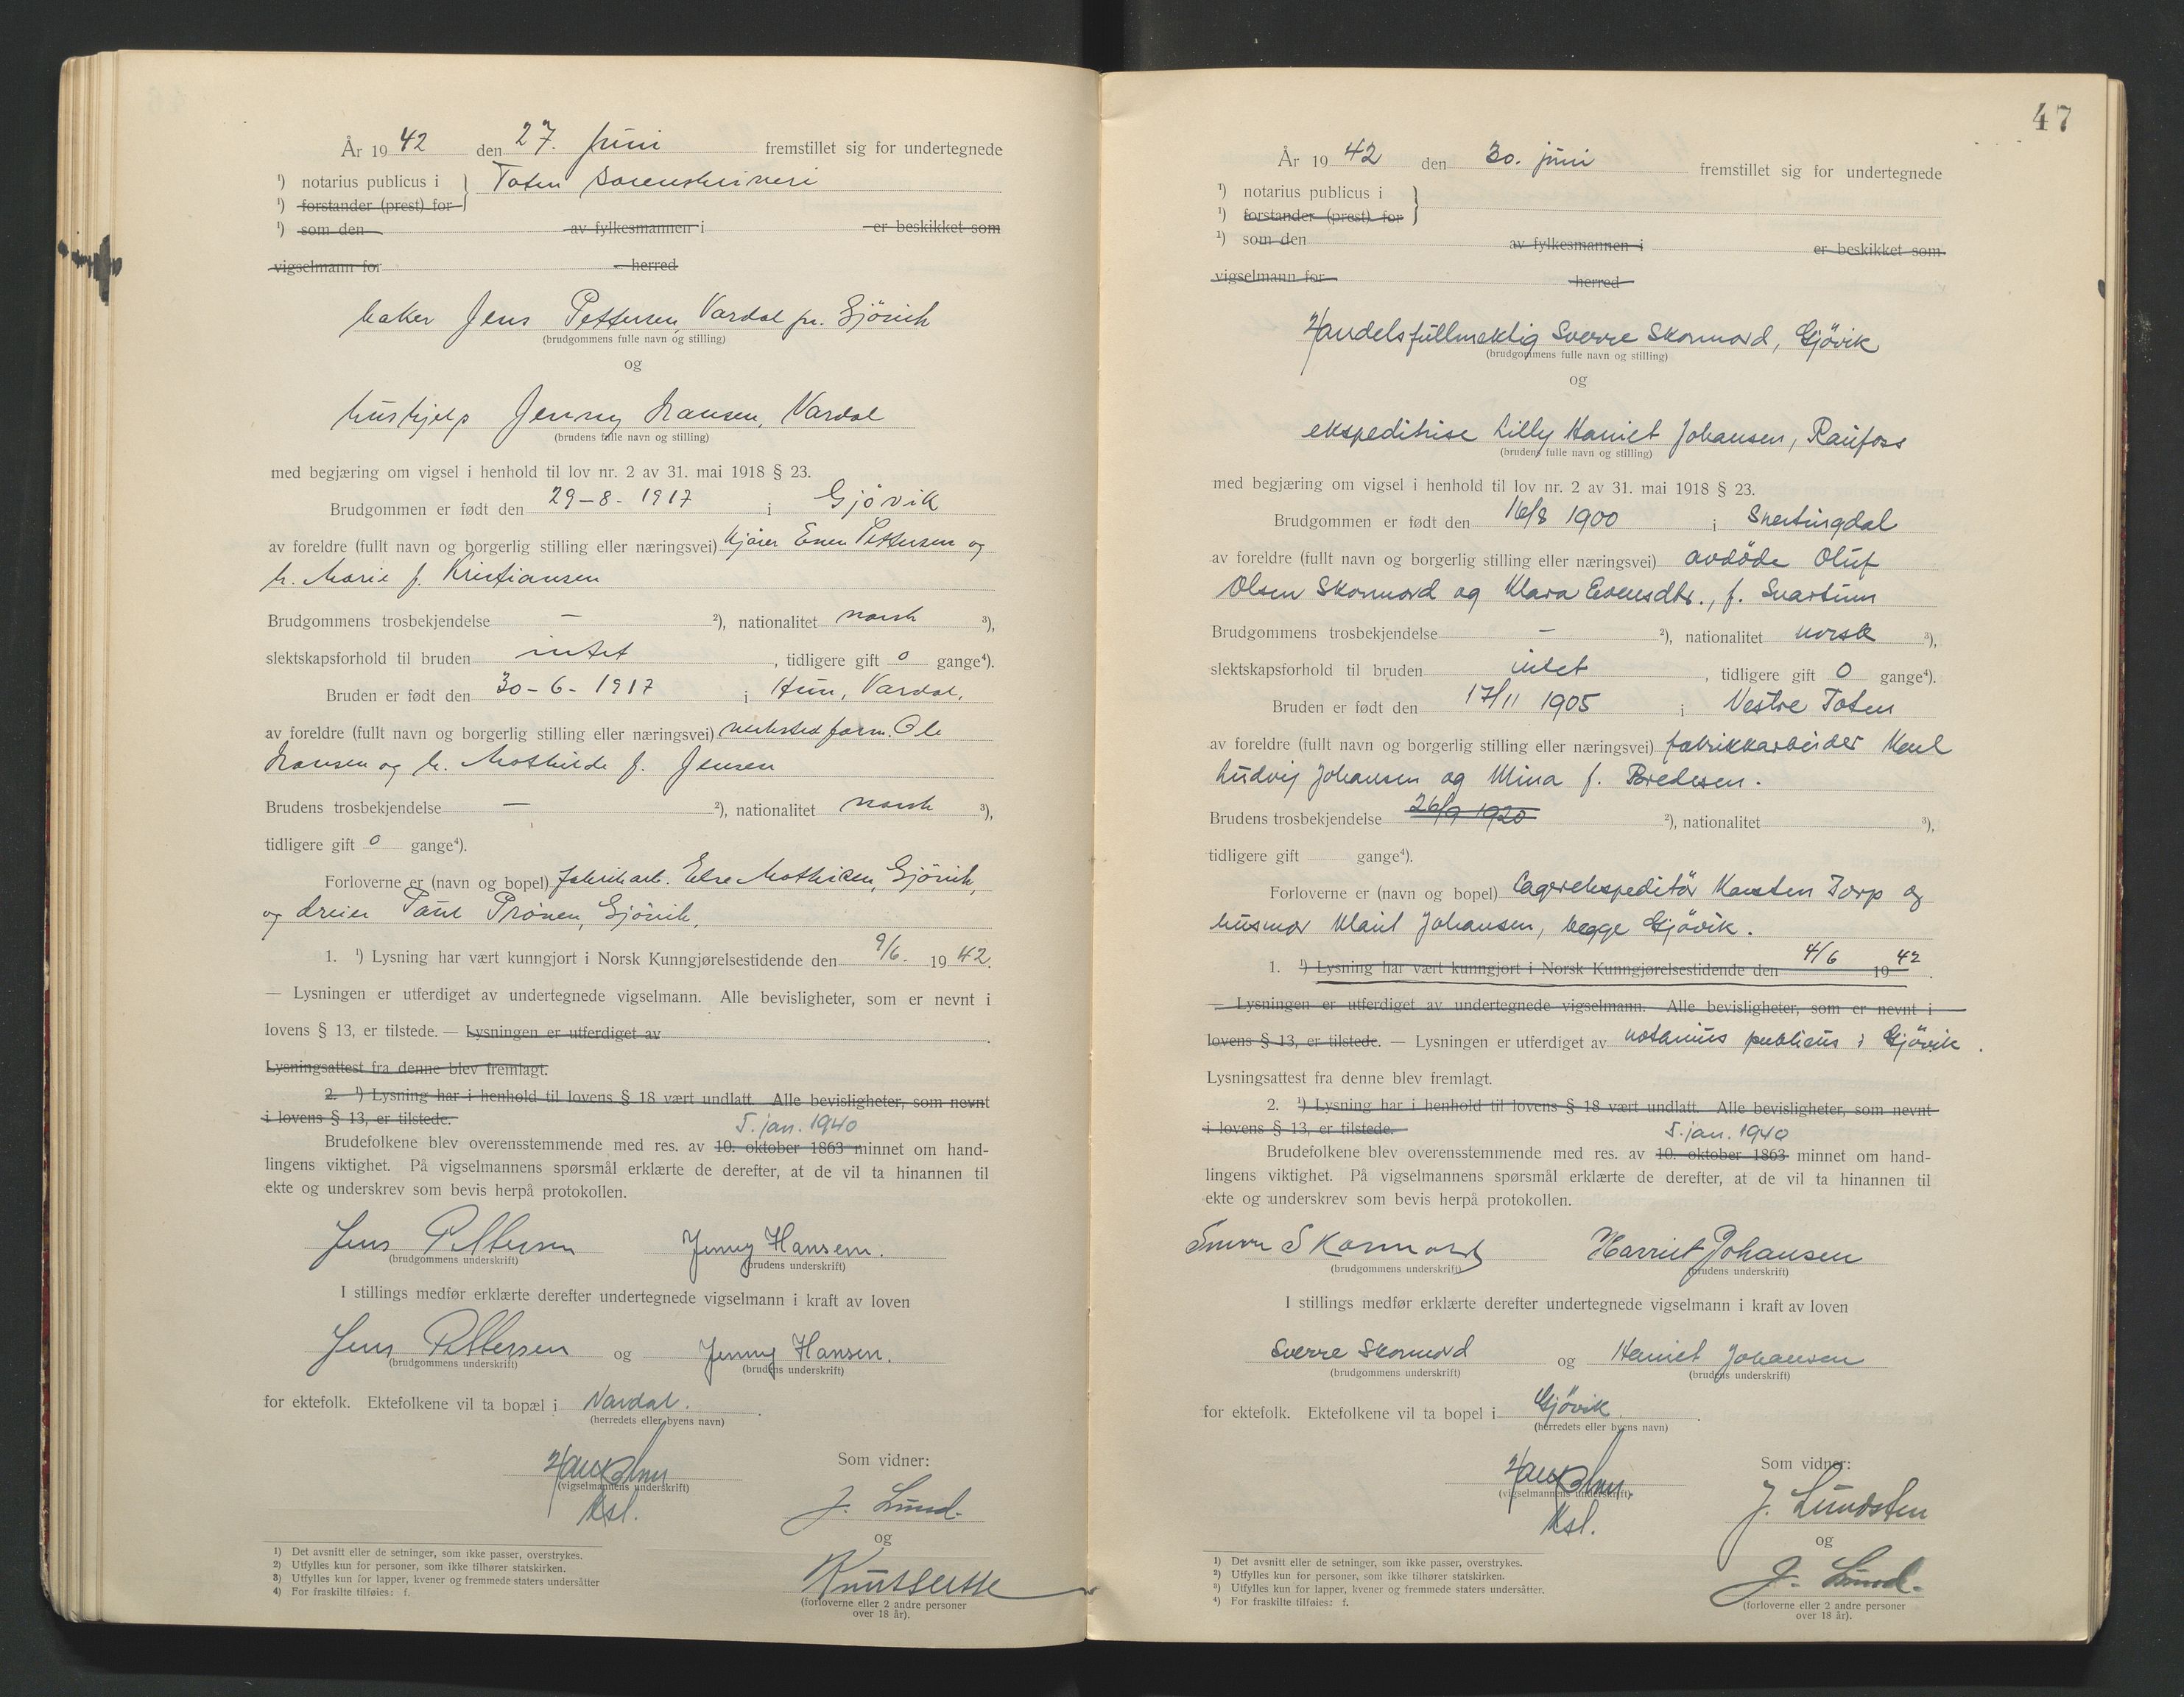 År 19 42 den 27. Juni fremstillet sig for undertegnede
¹) notarius publicus i } Toten sorenskriveri
¹) forstander (prest) for
¹) som den av fylkesmannen i er beskikket som
vigselmann for herred
baker Jens Pettersen, Vardal pr. Gjövik
(brudgommens fulle navn og stilling)
og
hushjelp Jenny Hansen, Vardal
(brudens fulle navn og stilling)
med begjæring om vigsel i henhold til lov nr. 2 av 31. mai 1918 § 23.
Brudgommen er født den 29-8-1917 i Gjövik
av foreldre (fullt navn og borgerlig stilling eller næringsvei) Pettersen og
h. Marie f. Kristiansen
Brudgommens trosbekjendelse — ²), nationalitet norsk ³),
slektskapsforhold til bruden intet, tidligere gift 0 gange⁴).
Bruden er født den 30-6-1917 i Hun, Vardal.
av foreldre (fullt navn og borgerlig stilling eller næringsvei) verksted form. Ole
Hansen og h. Mathilde f. Jensen
Brudens trosbekjendelse — ²), nationalitet norsk ³),
tidligere gift 0 gange⁴).
Forloverne er (navn og bopel) fabrikarb. Else Mathisen, Gjövik,
og dreier Paul Prönen, Gjövik.
1. ¹) Lysning har vært kunngjort i Norsk Kunngjørelsestidende den 9/6. 19 42.
— Lysningen er utferdiget av undertegnede vigselmann. Alle bevisligheter, som er nevnt i
lovens § 13, er tilstede. — Lysningen er utferdiget av .
Lysningsattest fra denne blev fremlagt.
2. ¹) Lysning har i henhold til lovens § 18 vært undlatt. Alle bevisligheter, som nevnt
i lovens § 13, er tilstede.
5. jan. 1940
Brudefolkene blev overensstemmende med res. av 10. oktober 1863 minnet om hand-
lingens viktighet. På vigselmannens spørsmål erklærte de derefter, at de vil ta hinannen til
ekte og underskrev som bevis herpå protokollen.
Jens Pettersen Jenny Hansen.
(brudgommens underskrift) (brudens underskrift)
I stillings medfør erklærte derefter undertegnede vigselmann i kraft av loven
Jens Pettersen og Jenny Hansen.
(brudgommens underskrift) (brudens underskrift)
for ektefolk. Ektefolkene vil ta bopæl i Vardal.
(herredets eller byens navn)
Som vidner:
(vigselmannens underskrift)
J. Lund.
og
(forloverne eller 2 andre personer
over 18 år).
¹) Det avsnitt eller de setninger, som ikke passer, overstrykes.
²) Utfylles kun for personer, som ikke tilhører statskirken.
³) Utfylles kun for lapper, kvener og fremmede staters undersåtter
⁴) For fraskilte tilføies: f.
47
År 19 42 den 30. juni fremstillet sig for undertegnede
¹) notarius publicus i }
¹) forstander (prest) for
¹) som den av fylkesmannen i er beskikket som
vigselmann for herred
Handelsfullmektig Sverre Skonnord, Gjövik
(brudgommens fulle navn og stilling)
og
ekspeditrise Lilly Harriet Johansen, Raufoss
(brudens fulle navn og stilling)
med begjæring om vigsel i henhold til lov nr. 2 av 31. mai 1918 § 23.
Brudgommen er født den 16/8 1900 i Snertingdal
av foreldre (fullt navn og borgerlig stilling eller næringsvei) avdöde Oluf
Olsen Skonnord og Klara Evensdtr., f. Svartum
Brudgommens trosbekjendelse — ²), nationalitet norsk ³),
slektskapsforhold til bruden intet, tidligere gift 0 gange⁴).
Bruden er født den 17/11 1905 i Vestre Toten
av foreldre (fullt navn og borgerlig stilling eller næringsvei) fabrikkarbeider Karl
Ludvig Johansen og Mina f. Bredesen.
Brudens trosbekjendelse 26/9 1920 ²), nationalitet ³),
tidligere gift gange⁴).
Forloverne er (navn og bopel) lagerekspeditör Karsten Torp og
husmor Johansen, begge Gjövik.
1. ¹) Lysning har vært kunngjort i Norsk Kunngjørelsestidende den 4/6 19 42.
— Lysningen er utferdiget av undertegnede vigselmann. Alle bevisligheter, som er nevnt i
lovens § 13, er tilstede. — Lysningen er utferdiget av notarius publicus i Gjövik.
Lysningsattest fra denne blev fremlagt.
2. ¹) Lysning har i henhold til lovens § 18 vært undlatt. Alle bevisligheter, som nevnt
i lovens § 13, er tilstede.
5. jan. 1940
Brudefolkene blev overensstemmende med res. av 10. oktober 1863 minnet om hand-
lingens viktighet. På vigselmannens spørsmål erklærte de derefter, at de vil ta hinannen til
ekte og underskrev som bevis herpå protokollen.
Sverre Skonnord Harriet Johansen
(brudgommens underskrift) (brudens underskrift)
I stillings medfør erklærte derefter undertegnede vigselmann i kraft av loven
Sverre Skonnord og Harriet Johansen
(brudgommens underskrift) (brudens underskrift)
for ektefolk. Ektefolkene vil ta bopel i Gjövik.
(herredets eller byens navn)
Som vidner:
(vigselmannens underskrift)
J. Lundsten
og
J. Lund.
(forloverne eller 2 andre personer
over 18 år).
¹) Det avsnitt eller de setninger, som ikke passer, overstrykes.
²) Utfylles kun for personer, som ikke tilhører statskirken.
³) Utfylles kun for lapper, kvener og fremmede staters undersåtter.
⁴) For fraskilte tilføies: f.